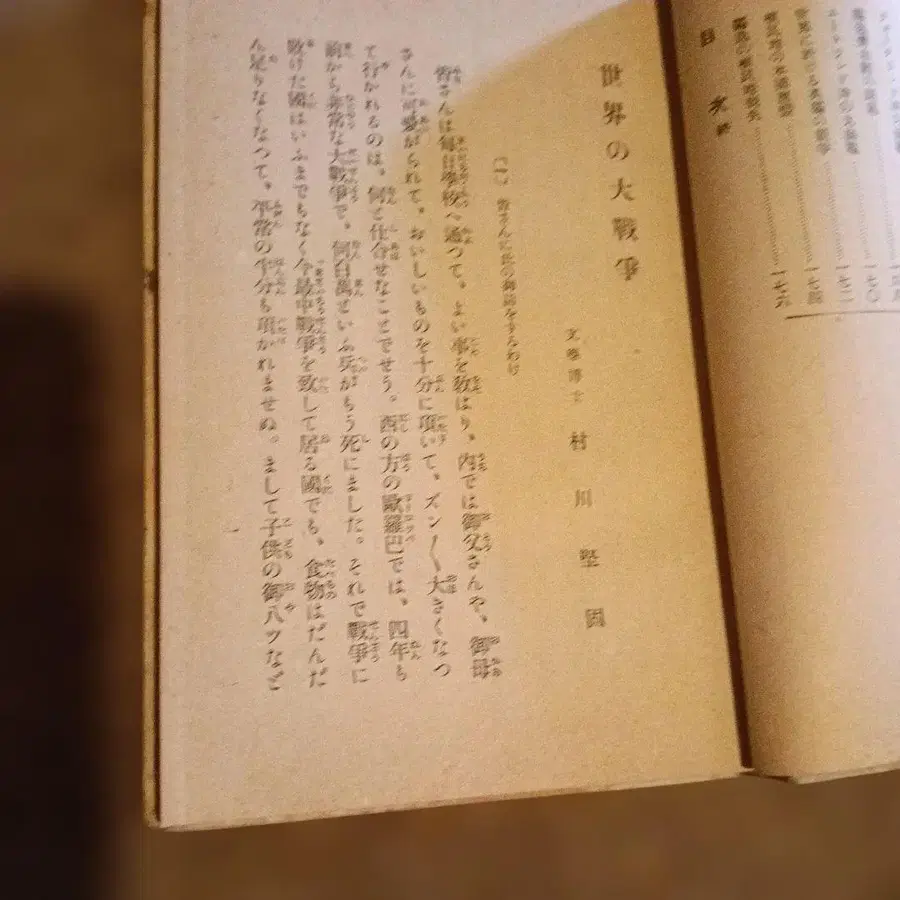 目次終
一七〇
一七二
一七四
一七六
世界の大戰爭
文學博士 村川堅固
(一) 皆さんに此の御話をするわけ
皆さんは毎日學校へ通つて、よい事を敎はり、內では御父さんや、御母
さんに可愛がられて、おいしいものを十分に頂いて、ズン〳〵大きくなつ
て行かれるのは、何と仕合せなことでせう。西の方の歐羅巴では、四年も
前から非常な大戰爭で、何百萬といふ兵がもう死にました。それで戰爭に
敗けた國はいふまでもなく今最中戰爭を致して居る國でも、食物はだんだ
ん足りなくなつて、平常の半分も頂かれませぬ。まして子供の御八ツなど
一